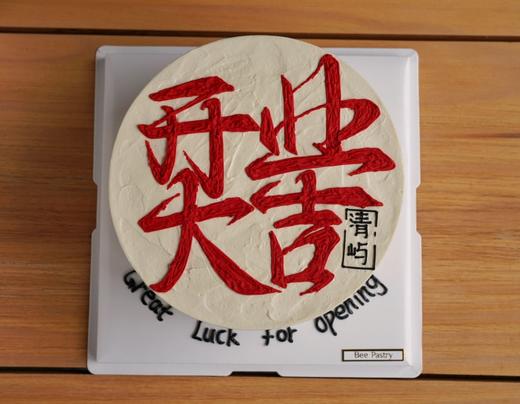 开业
大吉
清屿
Great Luck for opening
Bee Pastry